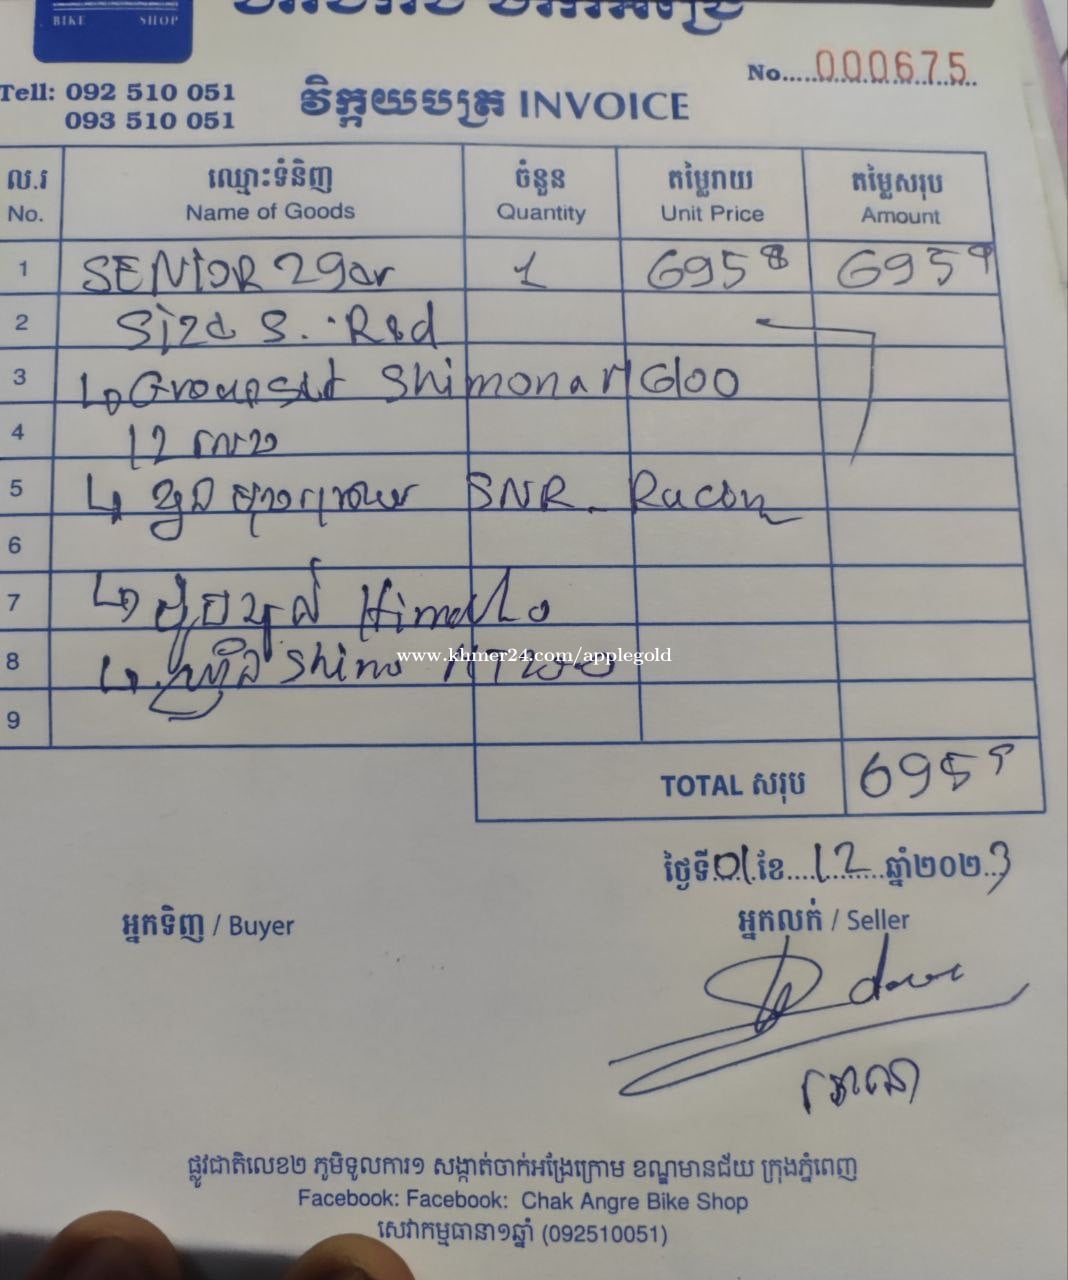 BIKE SHOP
No.....000675
Tell: 092 510 051
093 510 051
វិក្កយបត្រ INVOICE
ល.រ ឈ្មោះទំនិញ ចំនួន តម្លៃរាយ តម្លៃសរុប
No. Name of Goods Quantity Unit Price Amount
1 SENIOR 29er 1 695$ 695$
2 Size S. Red
3 Groupset Shimano M6100
4 12 លេខ
5 SNR Racon
6
7
8 Shimano MT200
www.khmer24.com/applegold
9
TOTAL សរុប 695$
ថ្ងៃទី.01.ខែ....12....ឆ្នាំ២០២..3
អ្នកទិញ / Buyer
អ្នកលក់ / Seller
ផ្លូវជាតិលេខ២ ភូមិទួលការ១ សង្កាត់ចាក់អង្រែក្រោម ខណ្ឌមានជ័យ ក្រុងភ្នំពេញ
Facebook: Facebook: Chak Angre Bike Shop
សេវាកម្មធានា១ឆ្នាំ (092510051)